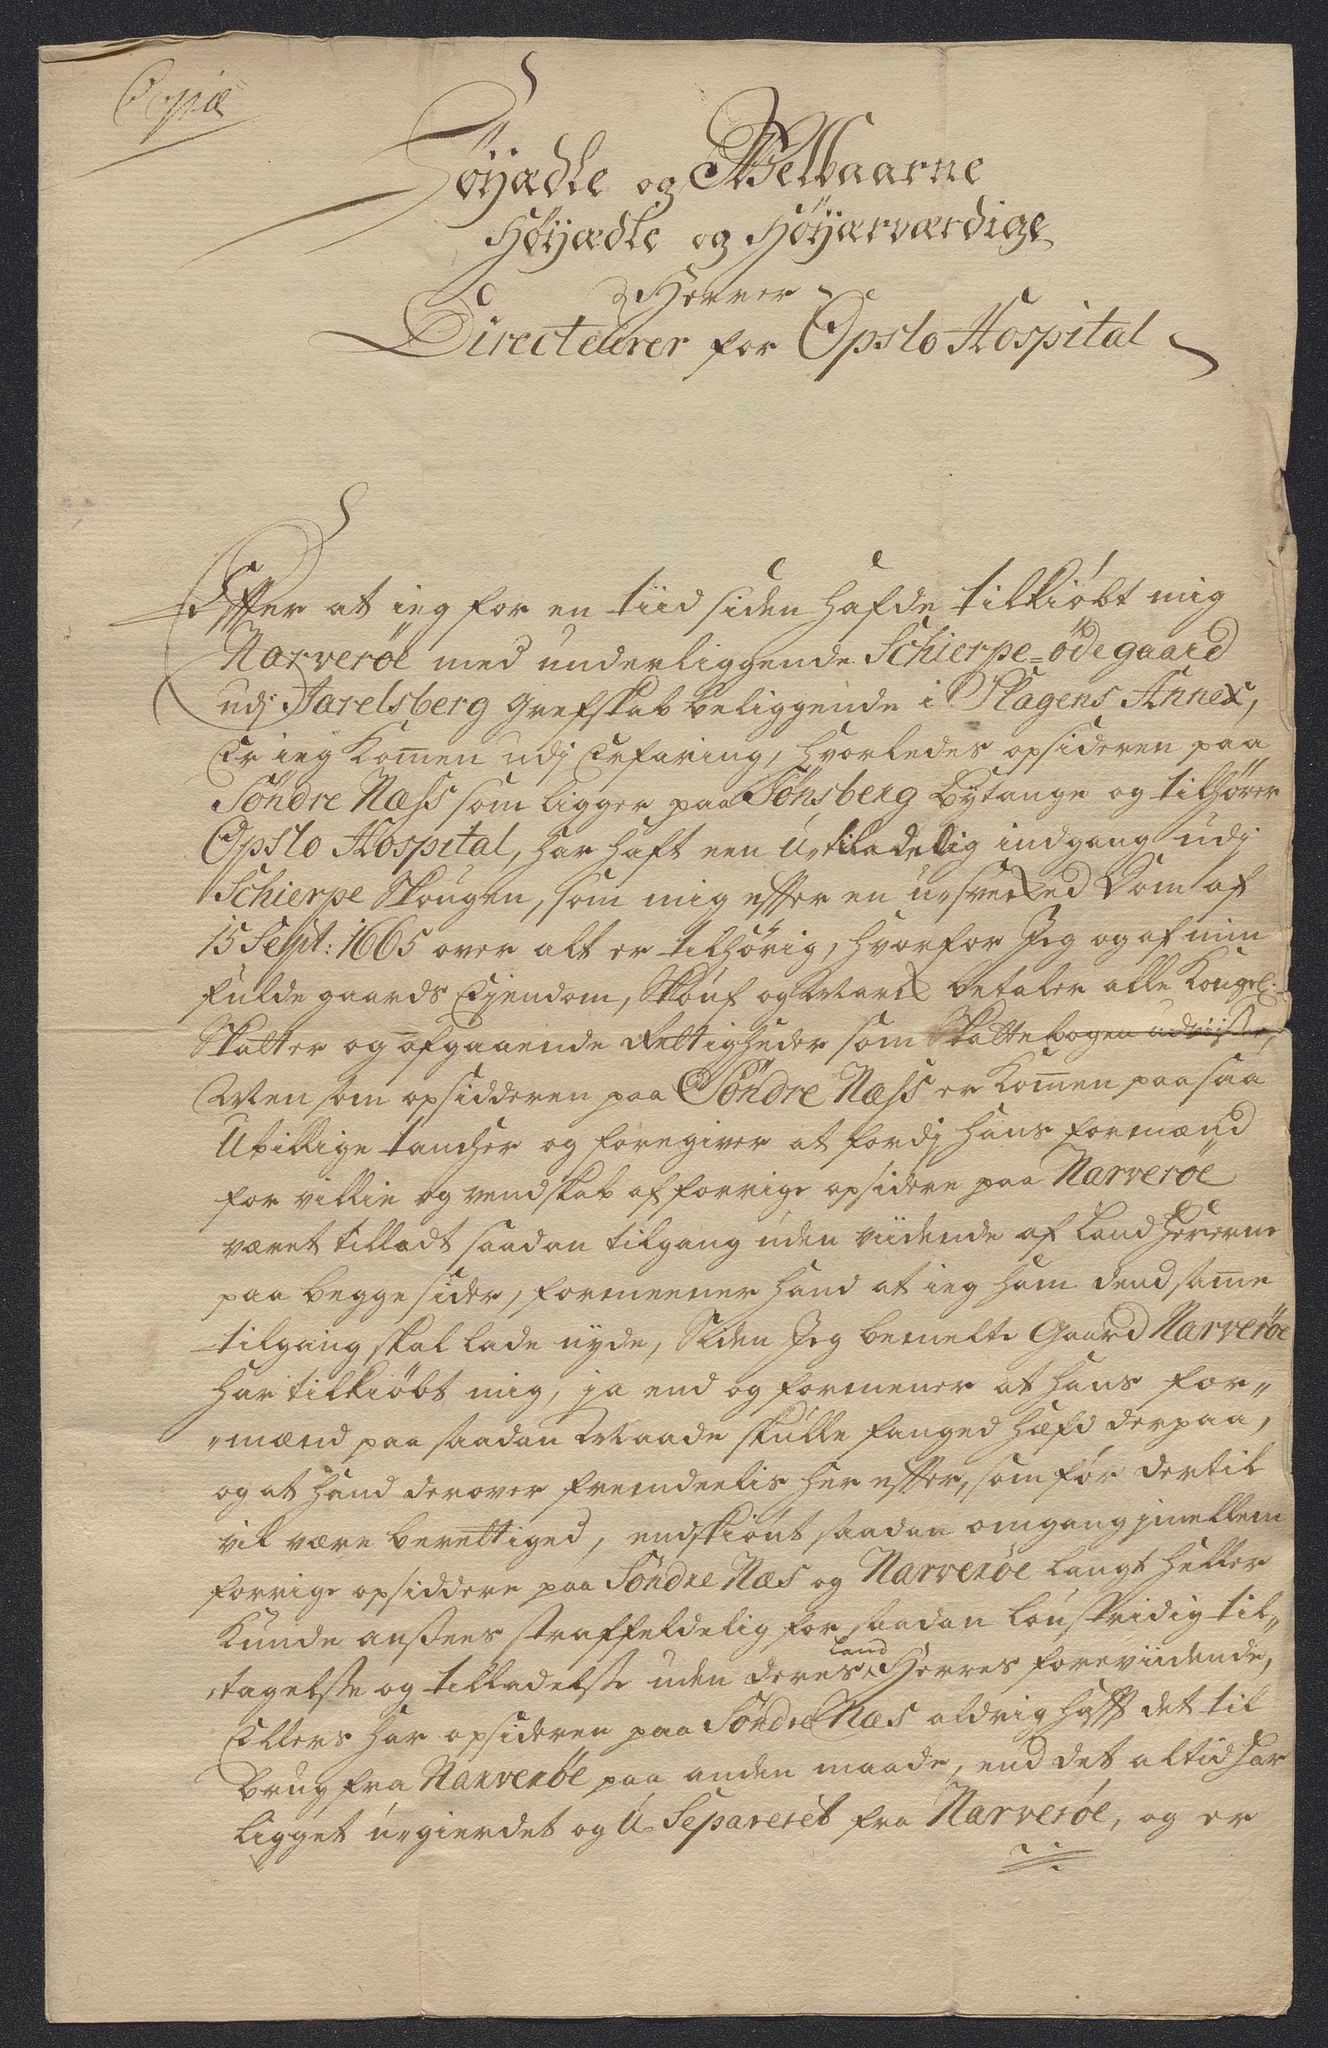 Copia
Høÿædle og Welbaarne
Høÿædle og Høÿærværdige
Herrer
Directeurer for Opslo Hospital
Efter at ieg for en tiid siden hafde tilkiöbt mig
Narveröe med underliggende Schierpe-ödegaard
udj Jarelsberg Grefskab beliggende i Slagens Annex,
Er ieg Komen udj Erfaring, hvorledes opsideren paa
Söndre Næss som ligger paa Tönsberg Bÿtange og tilhører
Opslo Hospital, har haft een U,,tiladelig indgang udj
Schierpe Skougen, som mig efter en u,,svecked Dom af
15 Sept: 1665 over alt er tilhörig, hvorfor Jeg og af min
fulde gaards Eÿendom, Skouf og Marck betaler alle Kongel:
Skatter og afgaaende Rettigheder som Skattebogen udviiser,
Men som opsidderen paa Söndre Næss er Komen paa saa
Ubillige tancher og foregiver at fordj hans formænd
for villie og vendskab af forrige opsidere paa Narveröe
været tilladt saadan tilgang uden viidende af Land Herrerne
paa begge sider, formeener hand at ieg ham dend same
tilgang skal lade nÿde, Siden Jeg bemelte Gaard Narveröe
har tilkiöbt mig, ja end og formener at hans for,,
,,mænd paa saadan Maade skulle fanged hæfd derpaa,
og at hand derover fremdeelis her efter, som för dertil
vil være berettiged, endskiönt saadan omgang jmellem
forrige opsiddere paa Söndre Næs og Narveröe langt heller
Kunde ansees straffeldelig for saadan loustridig til,,
,,tagelse og tilladelse uden deres Land Herres foreviidende,
Ellers har opsideren paa Söndre Næs aldrig haft det til
brug fra Narveröe paa anden maade, end det altid har
ligget u,,gierdet og U-Separeret fra Narveröe, og er